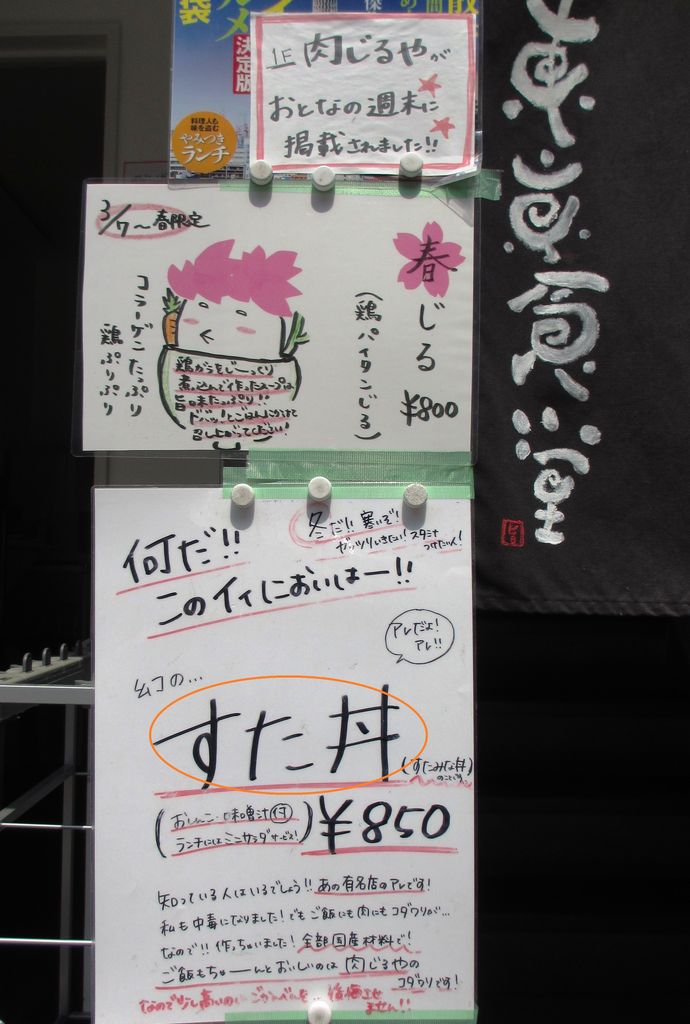 決定版
料理人も
味を盗む
やみつき
ランチ
正 肉じるやが
おとなの週末に
掲載されました!!
3/7〜春限定
春じる
¥800
(鶏パイタンじる)
コラーゲンたっぷり
鶏ぷりぷり
鶏ガラをじーっくり
煮込んで作ったスープは
旨味たっぷり!!
ドバッ!とごはんにかけて
召し上がってください!
冬だ!! 寒いぞ!
ガッツリいきたい! スタミナ
つけたい人!
何だ!!
このイイにおいはー!!
アレだよ!
アレ!!
ムコの…
すた丼
(すたみな丼)
のことです
(おしんこ・味噌汁付
ランチにはミニサラダサービス!)
¥850
知っている人はいるでしょう!! あの有名店のアレです!
私も中毒になりました! でもご飯にも肉にもコダワリが…
なので!! 作っちゃいました! 全部国産材料で!
ご飯もちゃーーんとおいしいのは 肉じるやの
コダワリです!
なので少し高いのは ごかんべんを… 後悔させ
ません!!